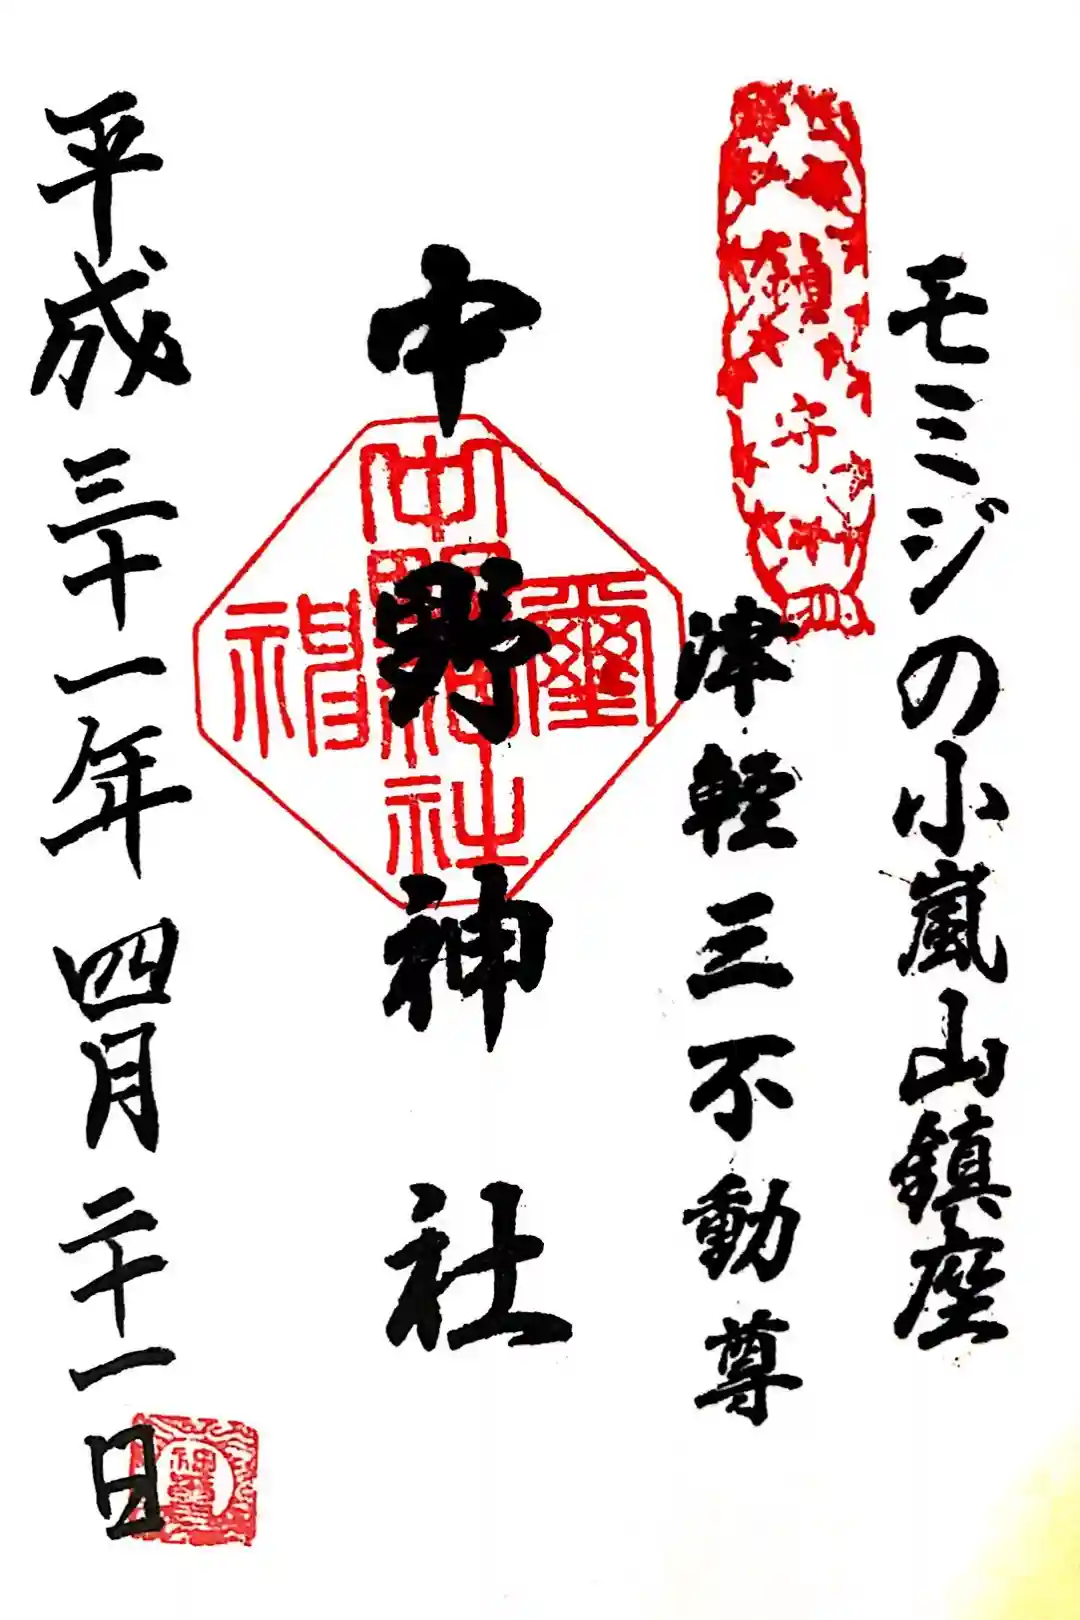 モミジの小嵐山鎮座
鎮守
津軽三不動尊
中野神社
中野神社
神璽
平成三十一年四月二十一日